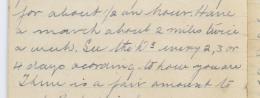 for about ½ an hour. Have
a march about 2 miles twice
a week. See the Drs every 2, 3 or
4 days acording to how you are
There is a fair amount to